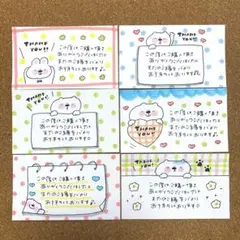 THANK YOU!
この度はご購入頂き
ありがとうございました
またのご縁を心より
お待ちしております
THANK YOU!
この度はご購入頂き
ありがとうございました
またのご縁を心より
お待ちしております
THANK YOU!
この度はご購入頂き
ありがとうございました
またのご縁を心より
お待ちしております
THANK YOU!
この度はご購入頂き
ありがとうございました
またのご縁を心より
お待ちしております
この度はご購入頂き
ありがとうございました
またのご縁を心より
お待ちしております
THANK YOU!
この度はご購入頂き
ありがとうございました
またのご縁を心より
お待ちしております